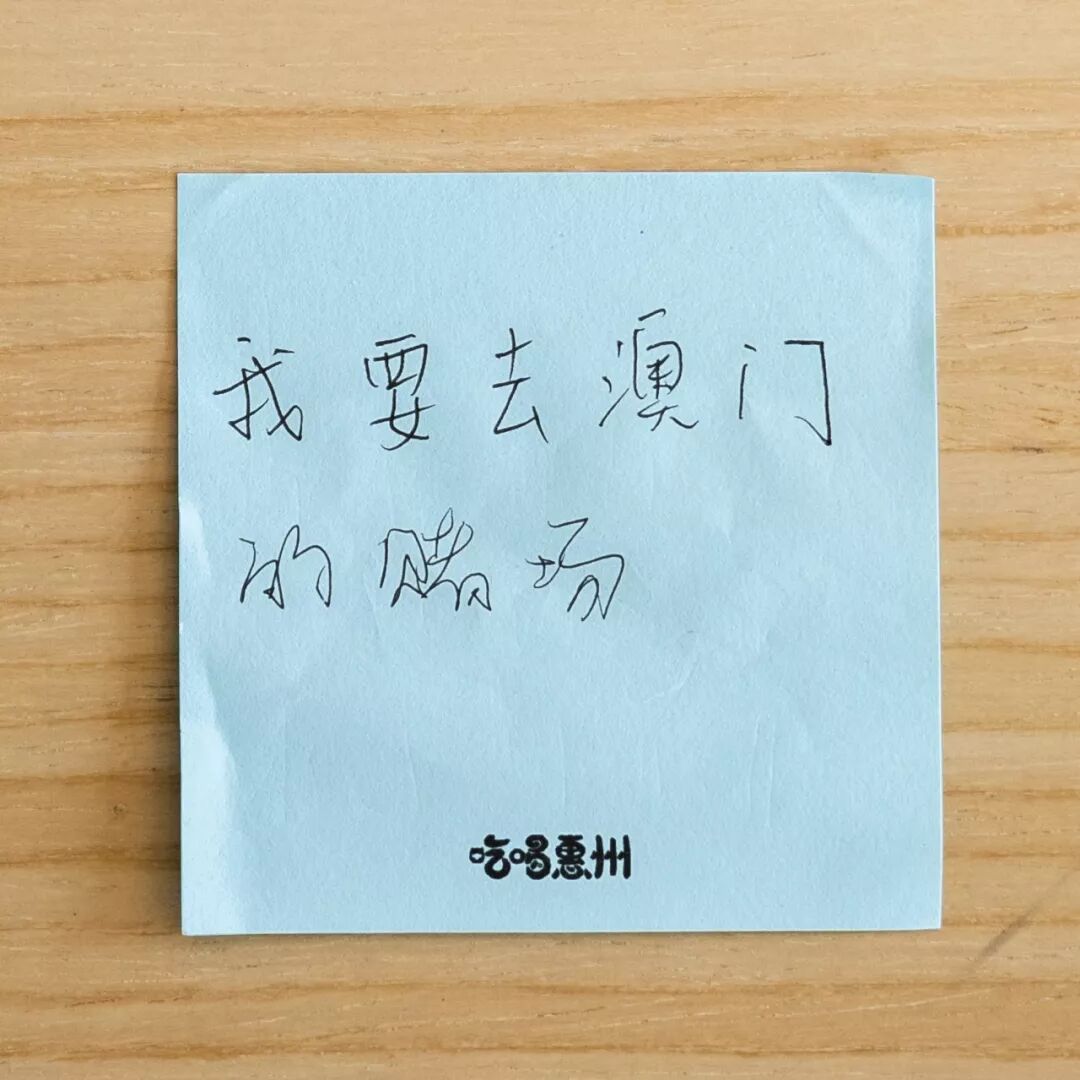 我要去澳门
的赌场
吃喝惠州